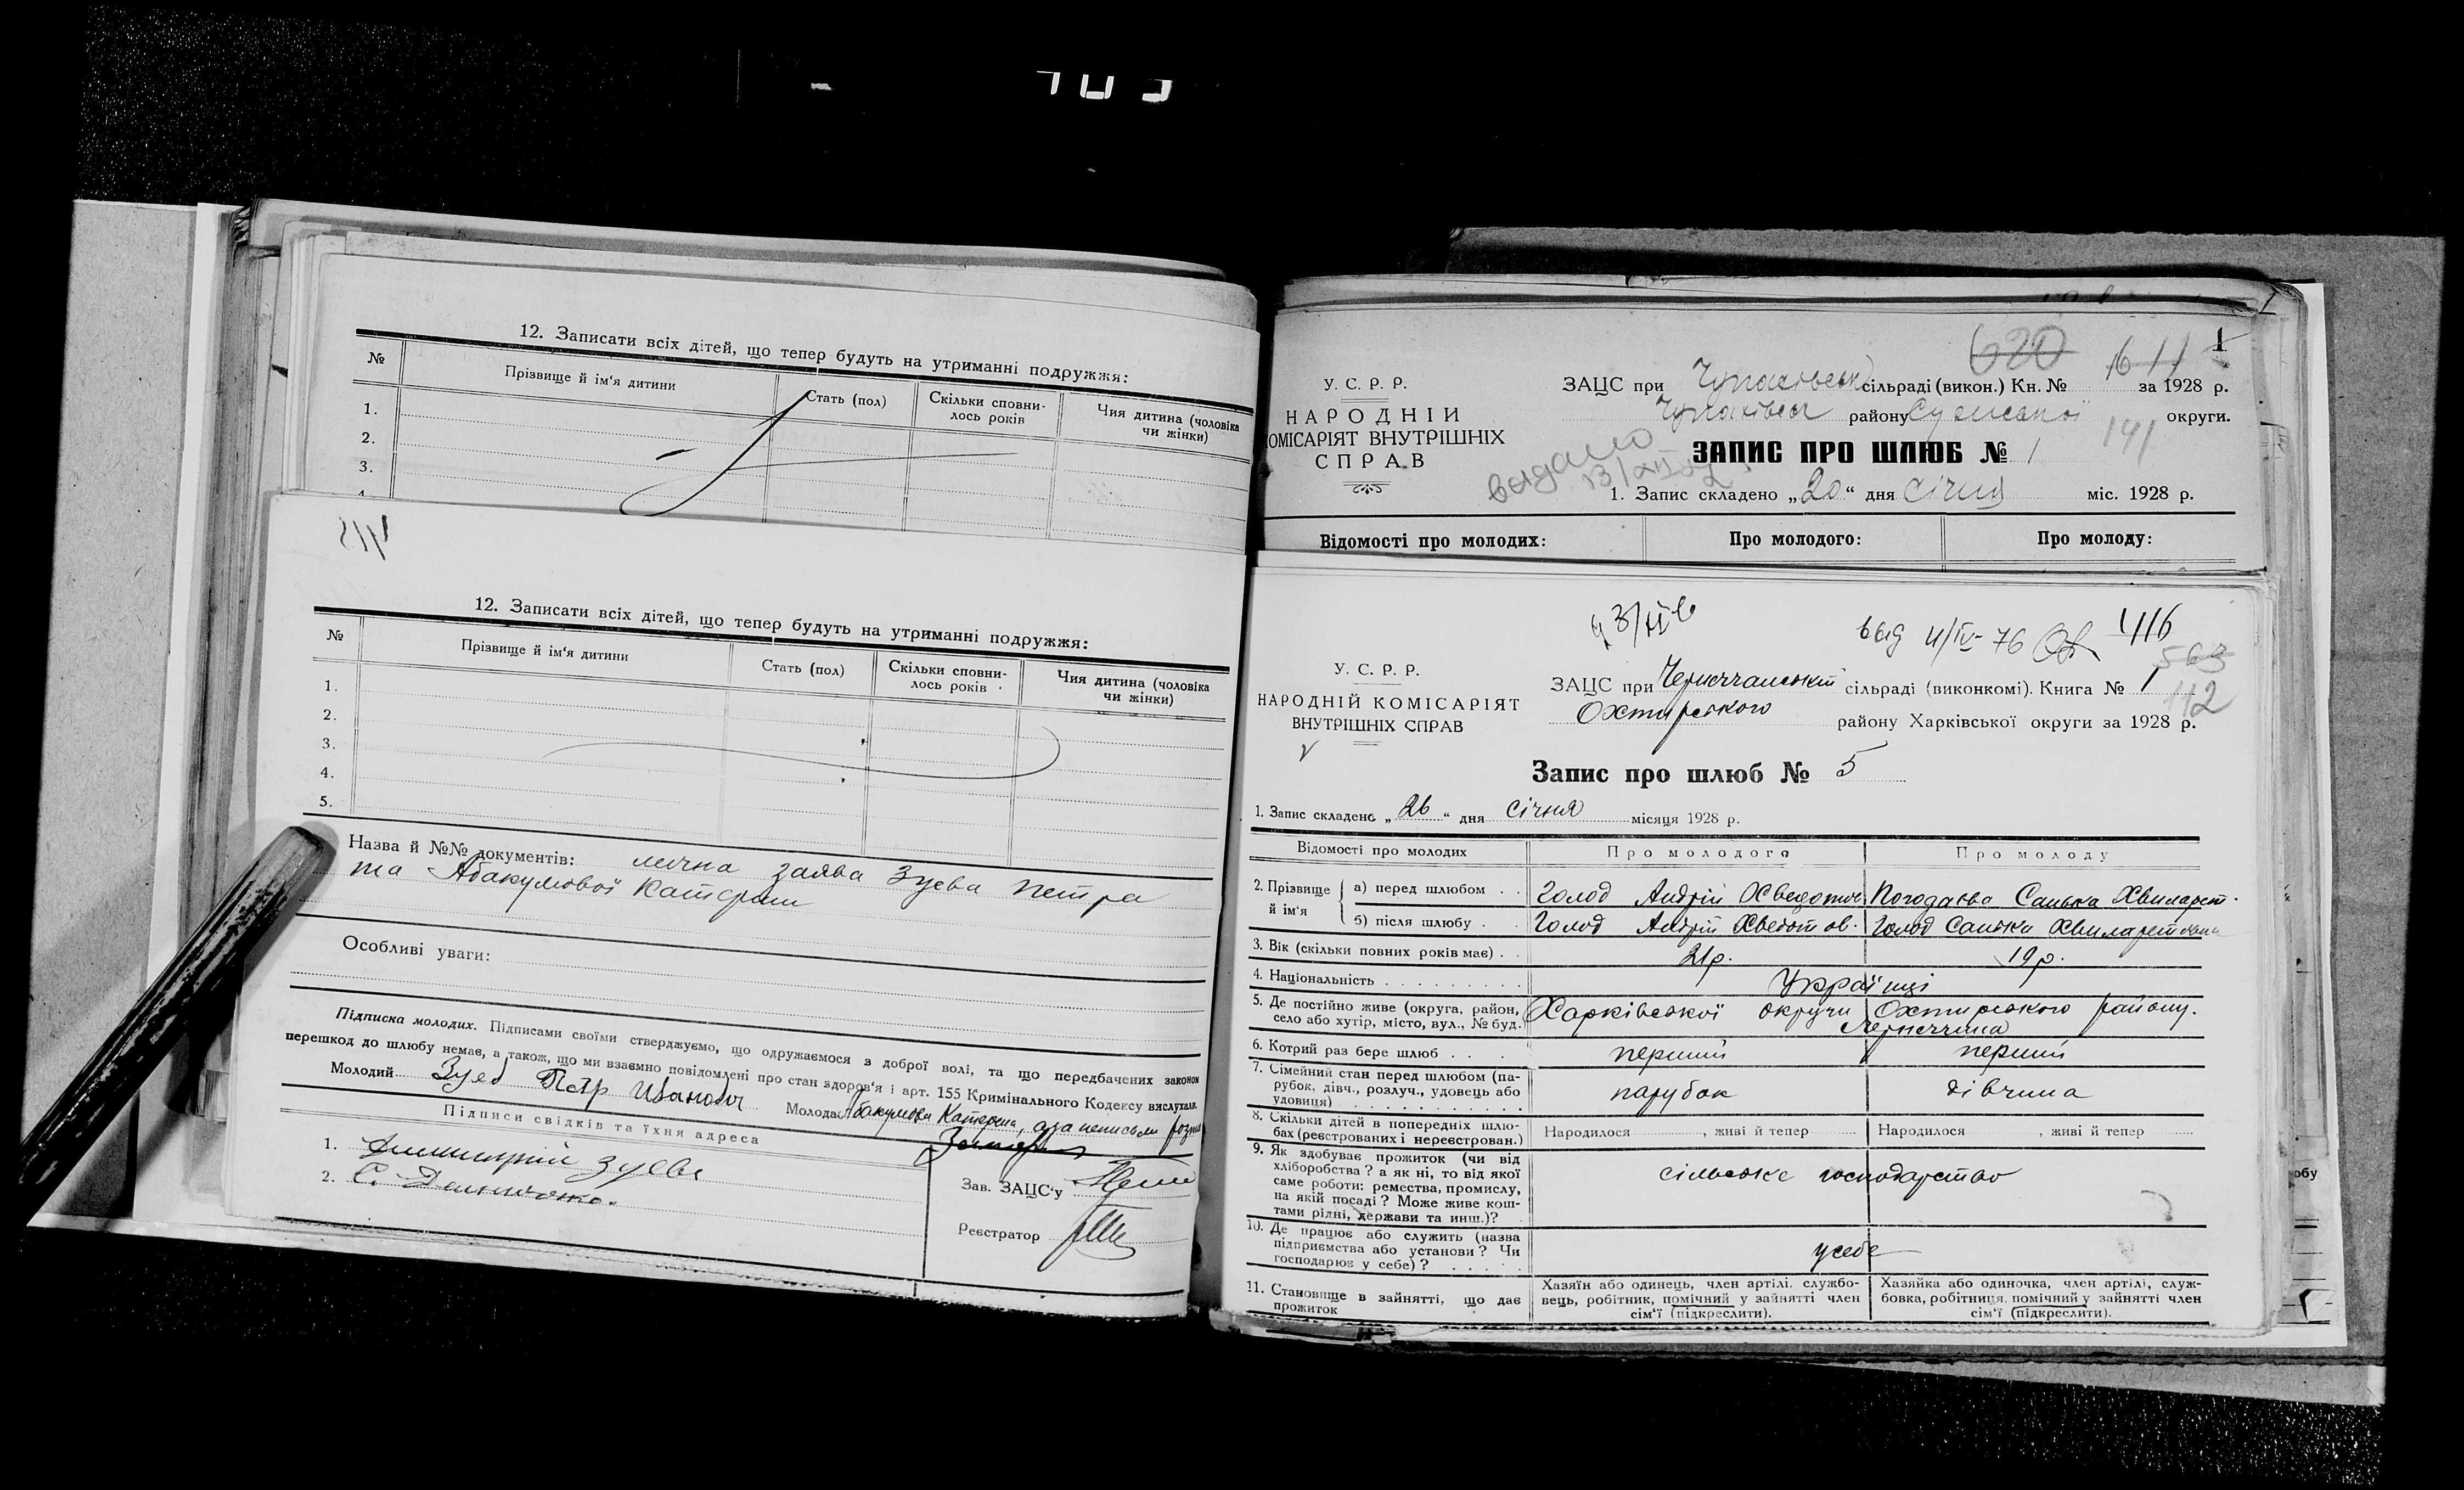 12. Записати всіх дітей, що тепер будуть на утриманні подружжя:
№ Прізвище й ім'я дитини Стать (пол) Скільки сповнилось років Чия дитина (чоловіка чи жінки)
1.
2.
3.
4
415
12. Записати всіх дітей, що тепер будуть на утриманні подружжя:
№ Прізвище й ім'я дитини Стать (пол) Скільки сповнилось років Чия дитина (чоловіка чи жінки)
1.
2.
3.
4.
5.
Назва й №№ документів: лична заява Зуєва Петра
та Абакумової Катерини
Особливі уваги:
Підписка молодих. Підписами своїми стверджуємо, що одружаємося з доброї волі, та що передбачених законом
перешкод до шлюбу немає, а також, що ми взаємно повідомлені про стан здоров'я і арт. 155 Кримінального Кодексу вислухали.
Молодий Зуев Петр Иванович Молода Абакумова Катерина, а за неписьмен
Підписи свідків та їхня адреса
1. Зуєв
2. С.
Зав. ЗАЦС'у
Реєстратор
620 611 1
У. С. Р. Р.
НАРОДНІЙ
КОМІСАРІЯТ ВНУТРІШНІХ
СПРАВ
ЗАЦС при Чупахівськ сільраді (викон.) Кн. № за 1928 р.
Чупахівськ району Сумської округи.
141
видано
ЗАПИС ПРО ШЛЮБ № 1
1. Запис складено „20“ дня січня міс. 1928 р.
Відомості про молодих: Про молодого: Про молоду:
вид 4/IV-76 416
563
112
У. С. Р. Р.
НАРОДНІЙ КОМІСАРІЯТ
ВНУТРІШНІХ СПРАВ
ЗАЦС при Чернеччанській сільраді (виконкомі). Книга № 1
Охтирського району Харківської округи за 1928 р.
Запис про шлюб № 5
1. Запис складено „26“ дня січня місяця 1928 р.
Відомості про молодих Про молодого Про молоду
2. Прізвище й ім'я
а) перед шлюбом Голод Андрій Хведотов. Погодаєва Санька Хвиларет.
б) після шлюбу Голод Андрій Хведотов. Голод Санька Хвиларетовна
3. Вік (скільки повних років має) 21р. 19р.
4. Національність Українці
5. Де постійно живе (округа, район, село або хутір, місто, вул., № буд.) Харківської округи Охтирського району.
Чернеччина
6. Котрий раз бере шлюб перший перший
7. Сімейний стан перед шлюбом (парубок, дівч., розлуч., удовець або удовиця) парубок дівчина
8. Скільки дітей в попередніх шлюбах (реєстрованих і нереєстрован.) Народилося , живі й тепер Народилося , живі й тепер
9. Як здобуває прожиток (чи від хліборобства? а як ні, то від якої саме роботи: ремества, промислу, на якій посаді? Може живе коштами рідні, держави та инш.)? сільське господарство
10. Де працює або служить (назва підприємства або установи? Чи господарює у себе)? у себе
11. Становище в зайнятті, що дає прожиток
Хазяїн або одинець, член артілі, службовець, робітник, помічний у зайнятті член сім'ї (підкреслити).
Хазяйка або одиночка, член артілі, службовка, робітниця, помічний у зайнятті член сім'ї (підкреслити).
обу